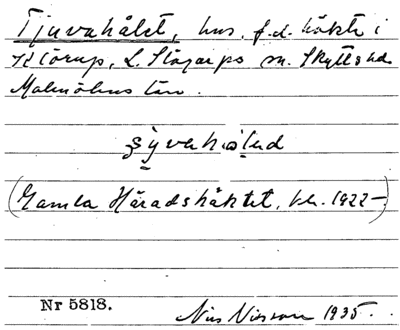 Tjuvahålet, hus, f.d. häkte i
Klörup, L. Slågarps sn. Skytts hd.
Malmöhus län.
(Gamla Häradshäktet, bl. 1922-)
Nr 5818.
Nils Nilsson 1935.